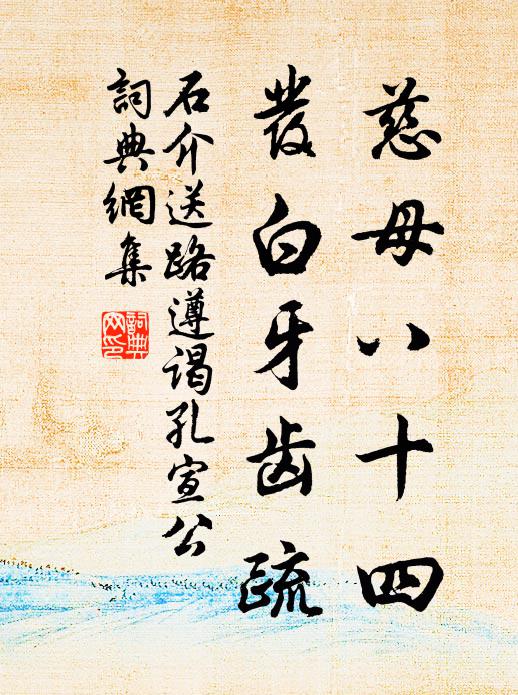 慈母八十四
发白牙齿疏
石介送路遵谒孔宣公
詞典網集
詞典网印